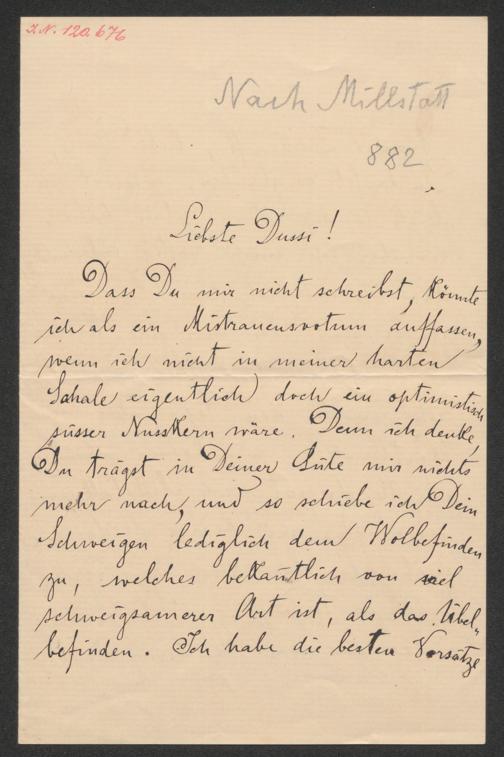 I.N. 120.676
Nach Millstatt
882
Liebste Dussi!
Dass Du mir nicht schreibst, könnte
ich als ein Mistrauensvotum auffassen,
wenn ich nicht in meiner harten
Schale eigentlich doch ein optimistisch
süsser Nusskern wäre. Denn ich denke,
Du trägst in Deiner Güte mir nichts
mehr nach, und so schiebe ich Dein
Schweigen lediglich dem Wolbefinden
zu, welches bekantlich von viel
schweigsamerer Art ist, als das Übel-
befinden. Ich habe die besten Vorsätze